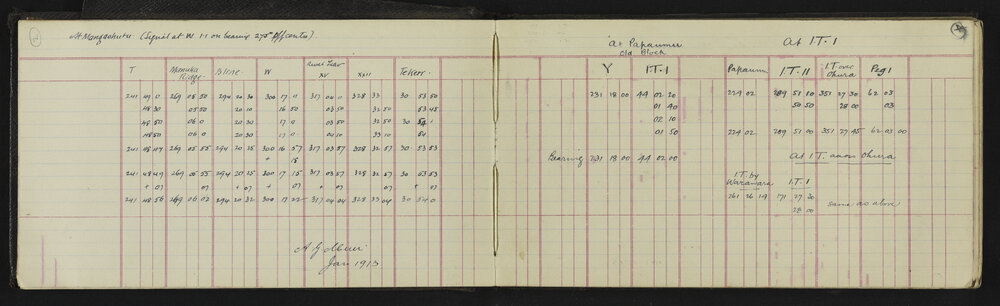 At Mangaohutu (Signal at W 1.1 on bearing 275° off centre)
T Manuka Ridge Bline W XV XVII Tekerr
241 49 0 269 05 50 294 20 30 300 17 0 317 04 0 328 33 30 53 50
48 30 05 50 20 10 16 50 03 50 32 50 53 45
48 50 06 0 20 30 17 0 03 50 32 50 30 54 1
48 50 06 0 20 30 17 0 04 10 33 10 54
241 48 47 269 05 55 294 20 25 300 16 57 317 03 57 328 32 57 30 53 53
+ 18
241 48 49 269 05 55 294 20 25 300 17 15 317 03 57 328 32 57 30 53 53
+ 07 07 07 + 07 07 + 07 + 07
241 48 56 269 06 02 294 20 32 300 17 22 317 04 04 328 33 04 30 54 0
Jan 1913
At Papaumu
Old Block
Y I.T.1
231 18 00 44 02 20
01 40
02 10
01 50
Bearing 231 18 00 44 02 00
At I.T.1
Papaumu I.T.11 I.T. over Ohura Peg 1
224 02 289 51 10 351 27 30 62 03
50 50 28 00 03
224 02 289 51 00 351 27 45 62 03 00
At I.T. over Ohura
I.T. by Waramara I.T.1
261 26 19 171 27 30 same as above
28 00